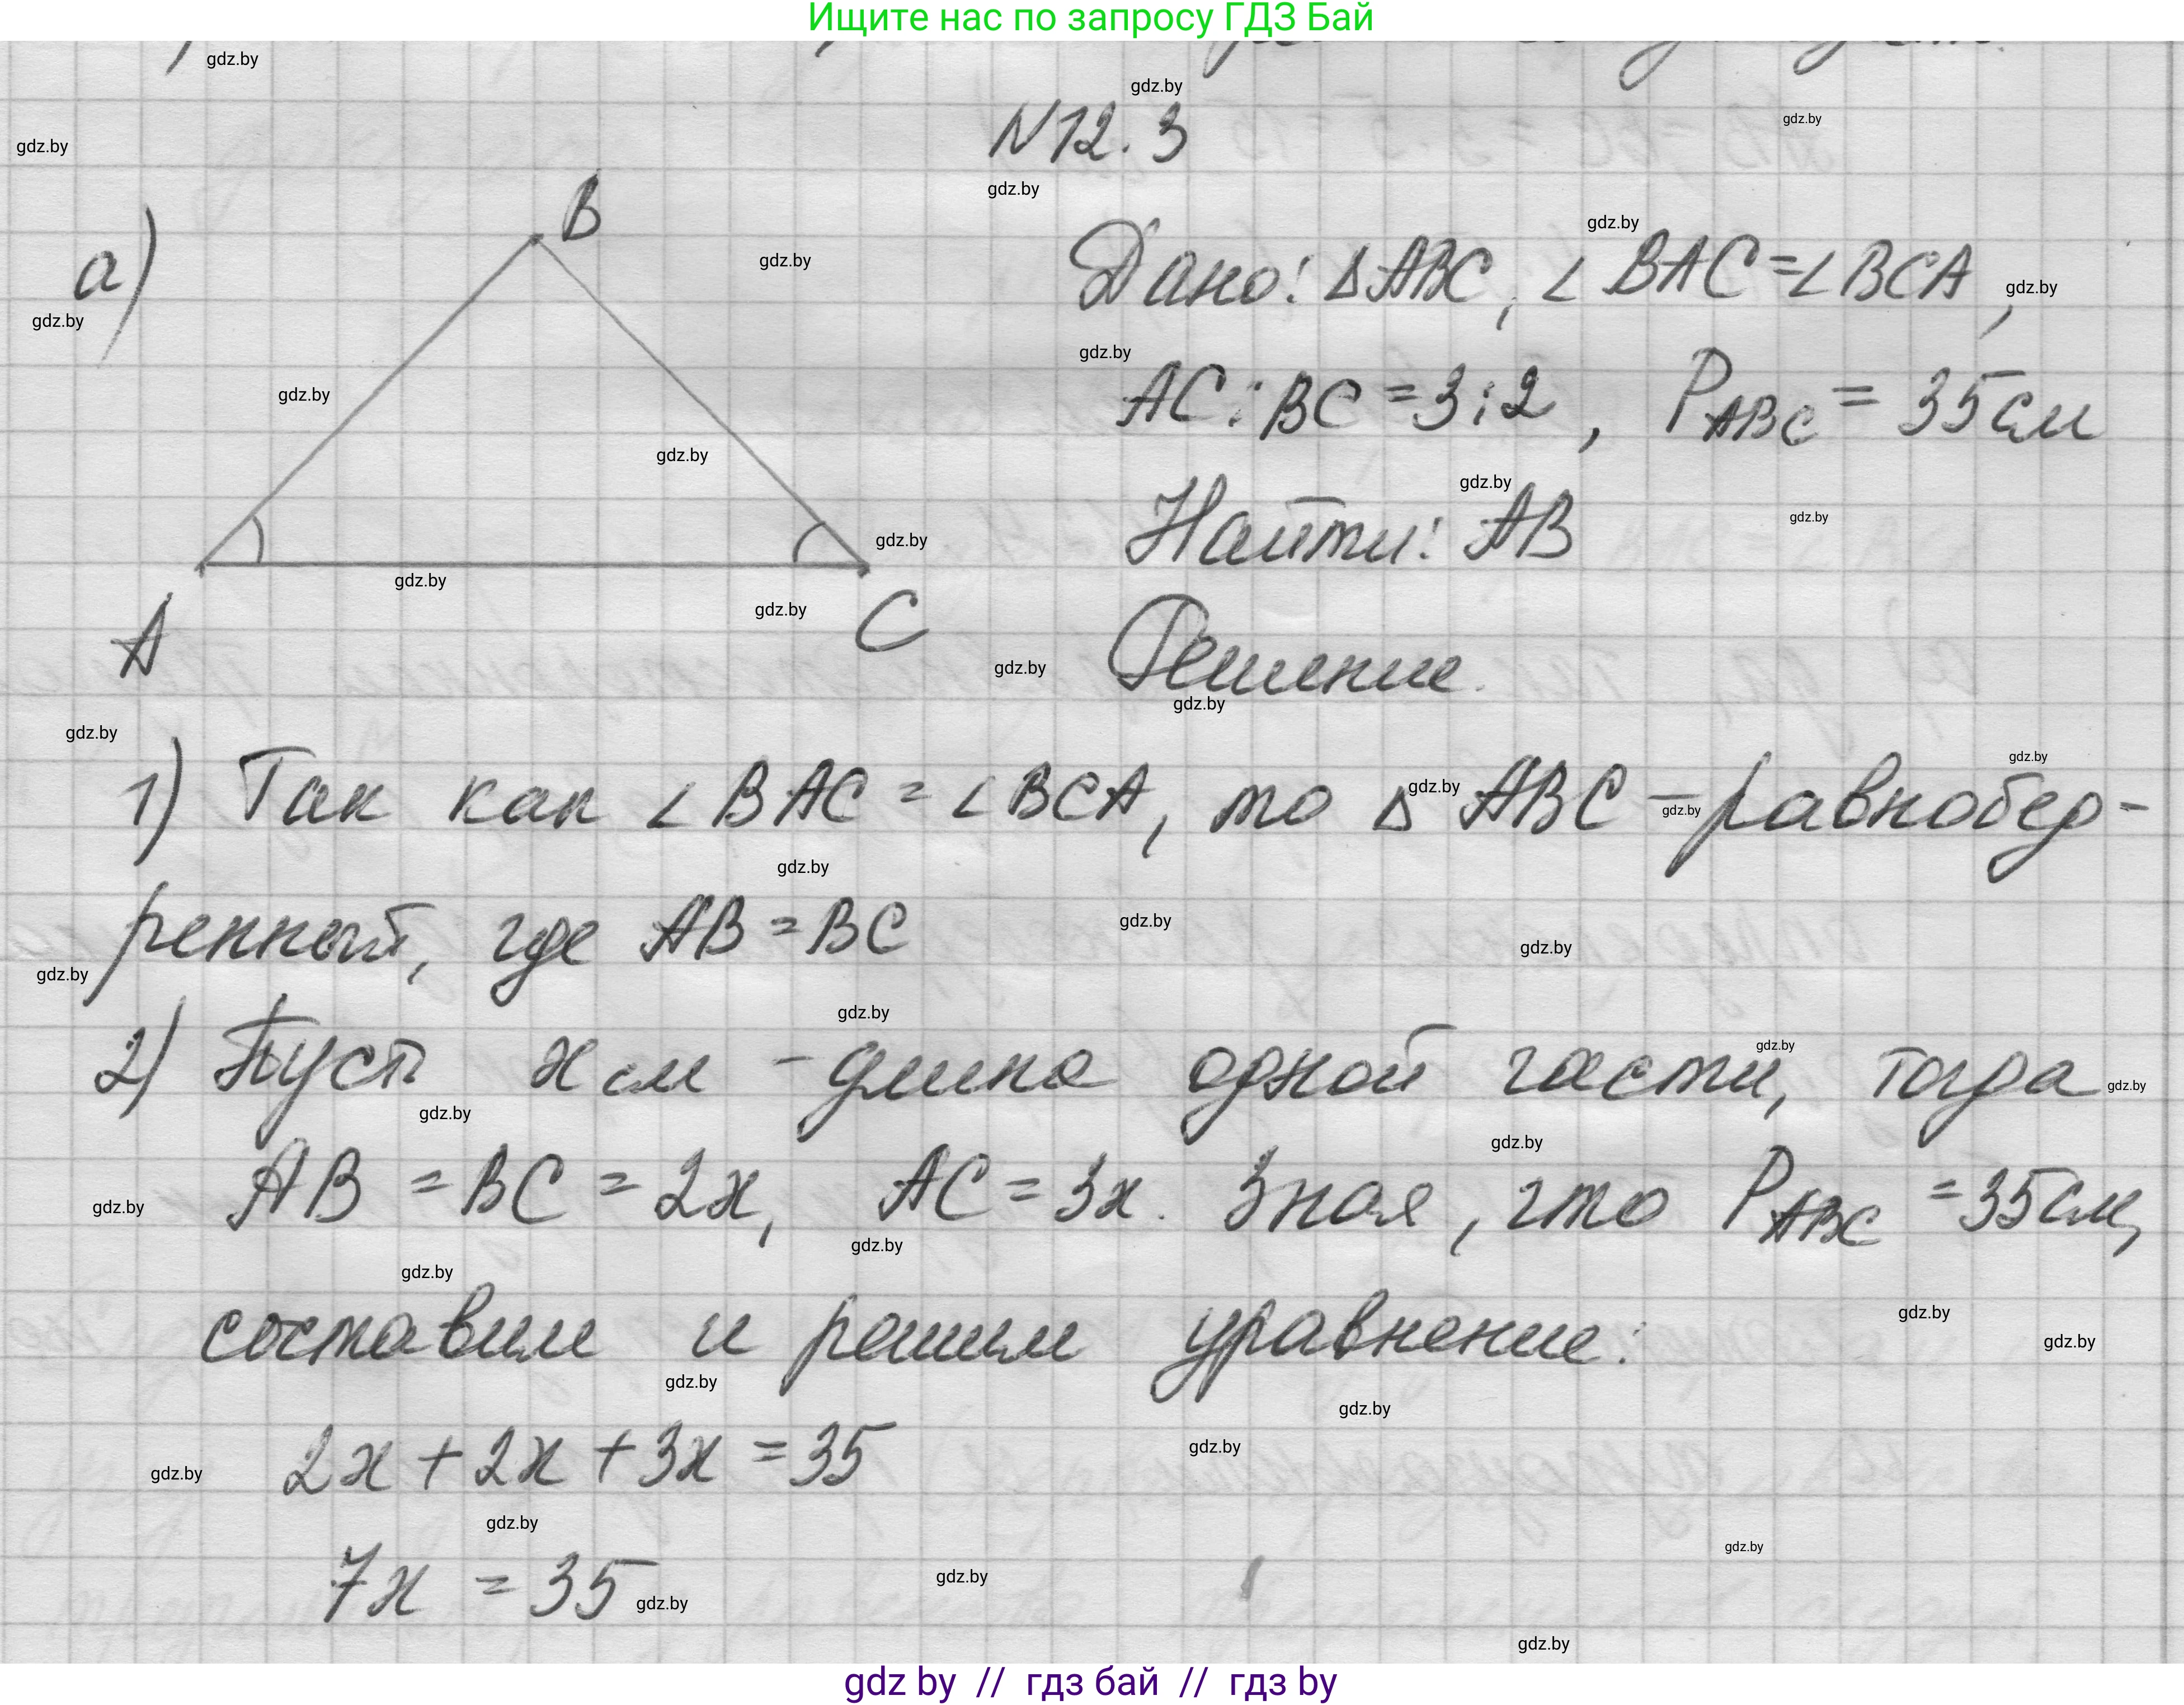 Ищите нас по запросу ГДЗ Бай
N12.3
а)
B
A
C
Дано: ΔABC, ∠BAC=∠BCA,
AC:BC=3:2, P_ABC = 35см
Найти: AB
Решение.
1) Так как ∠BAC = ∠BCA, то ΔABC – равнобер-
ренный, где AB = BC
2) Пусть x см – длина одной части, тогда
AB = BC = 2x, AC = 3x. Зная, что P_ABC = 35см,
составим и решим уравнение:
2x + 2x + 3x = 35
7x = 35
gdz by // гдз бай // гдз by